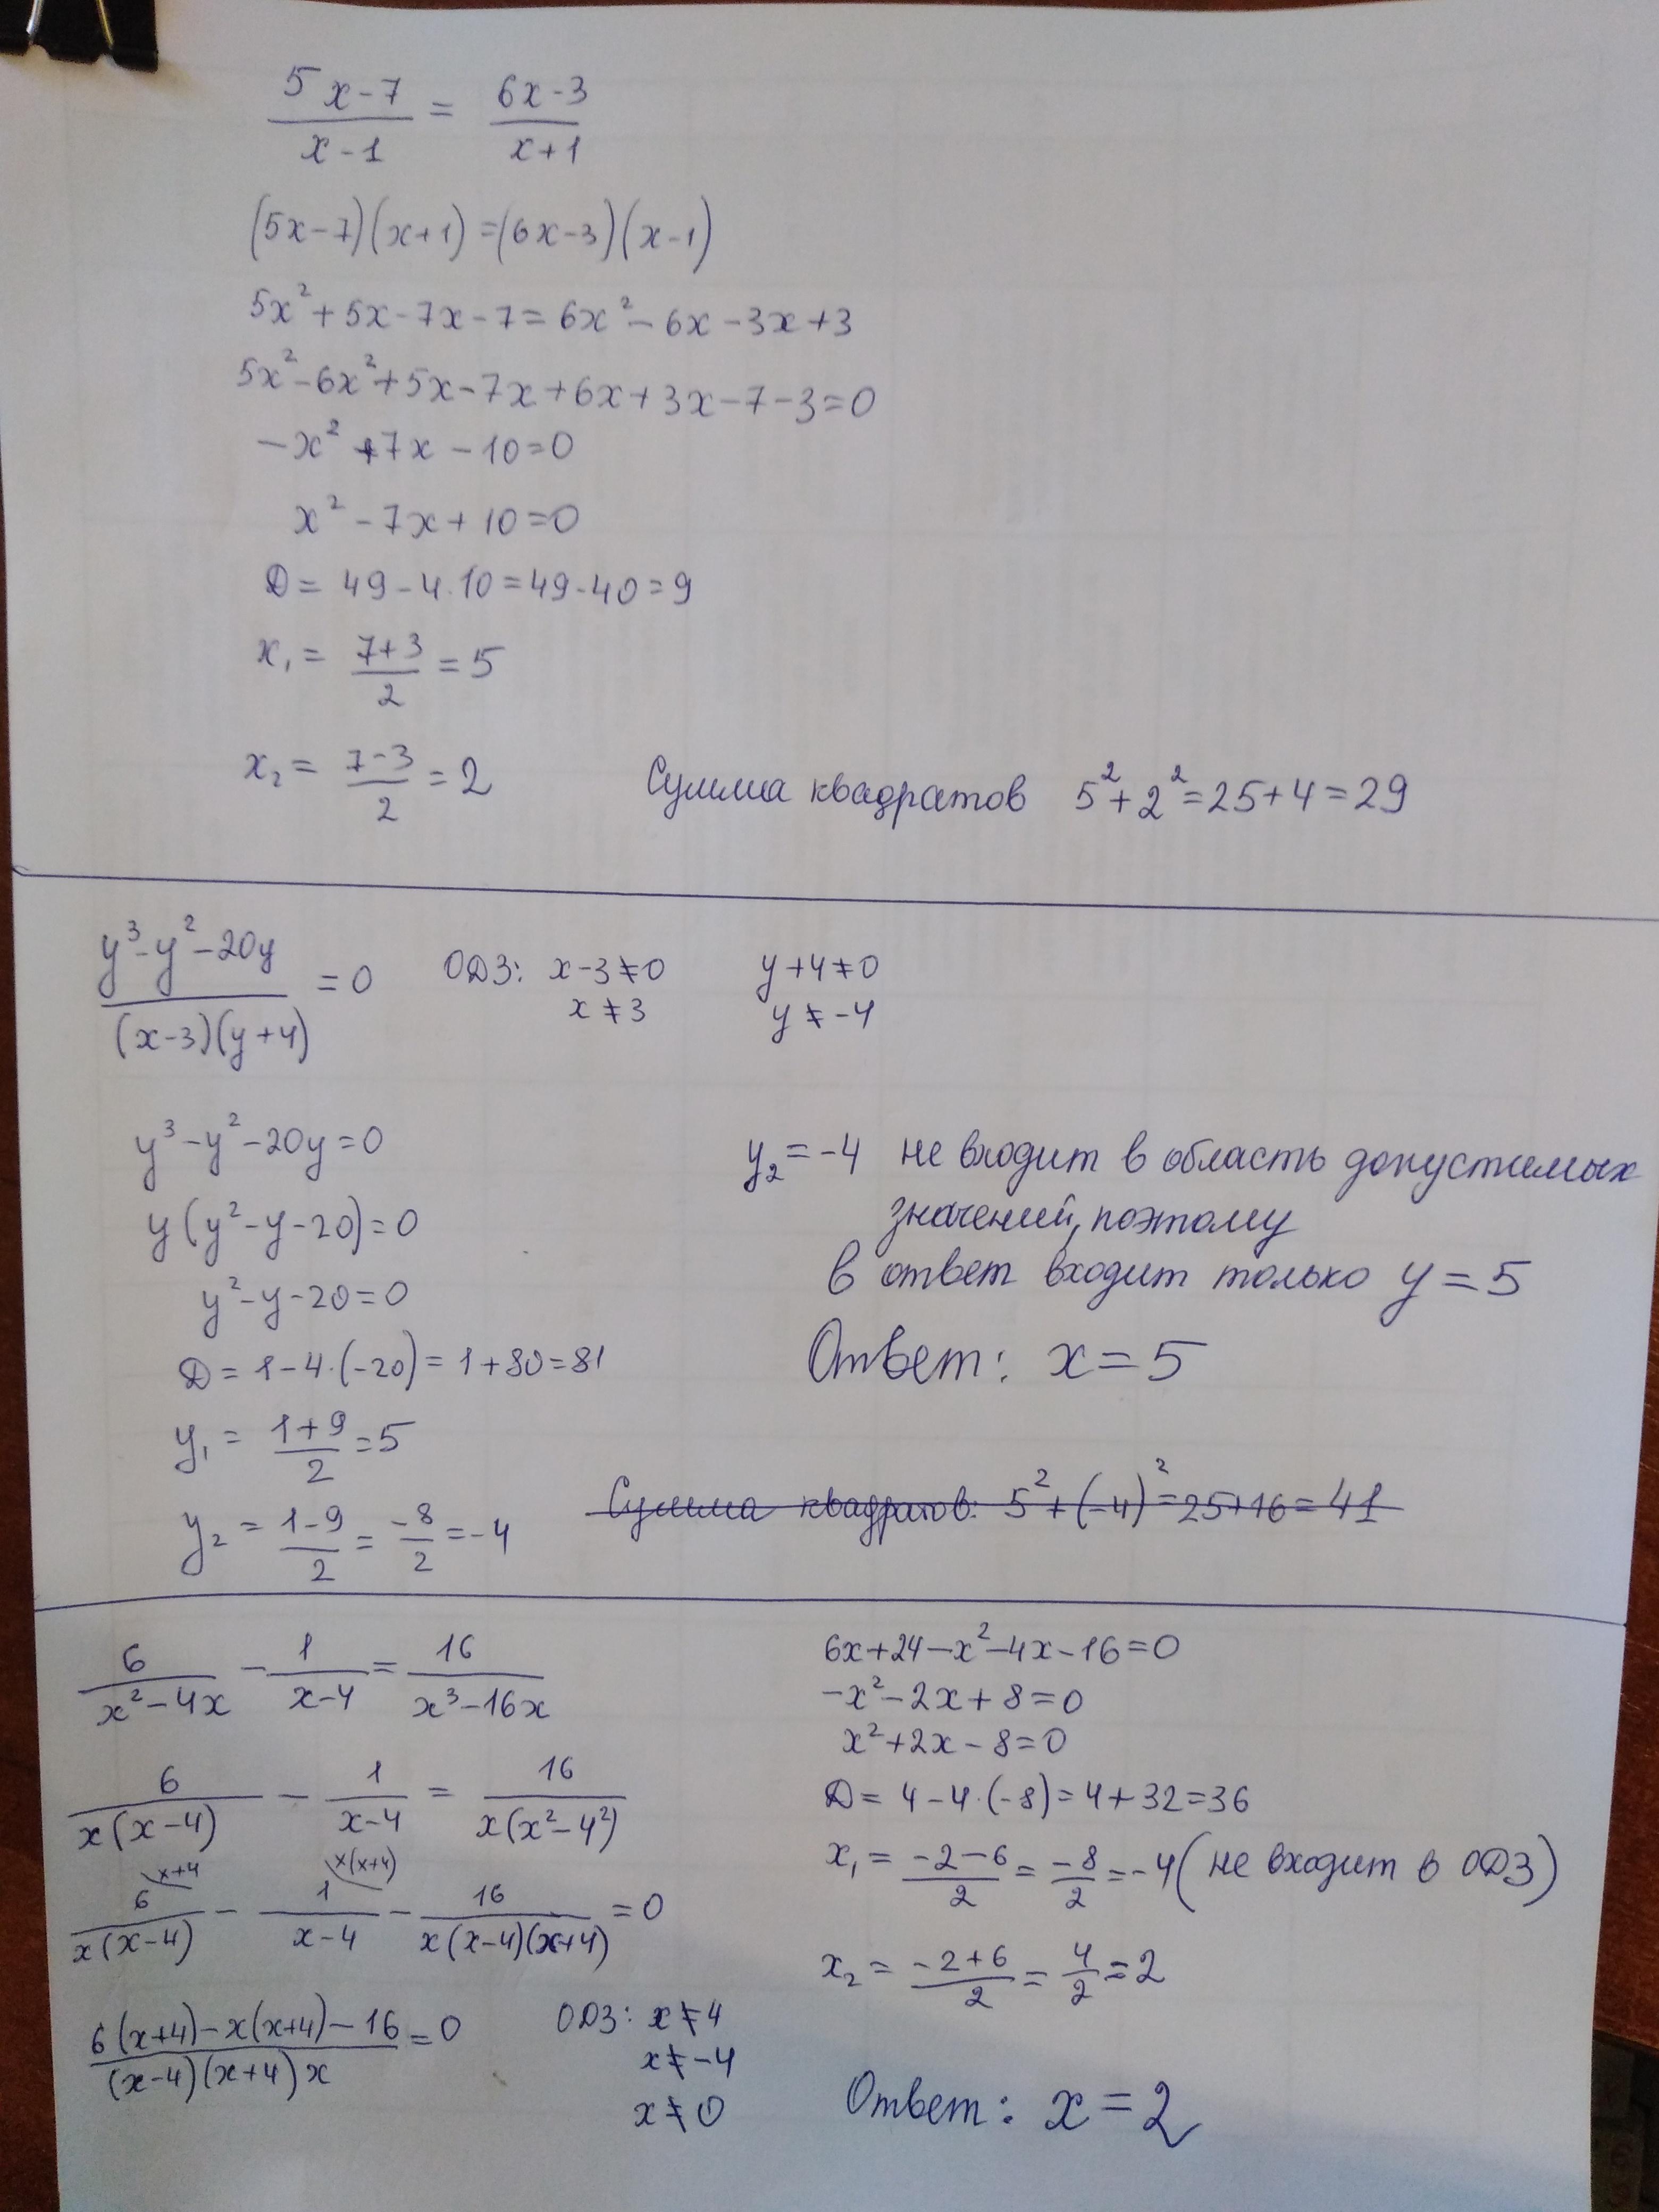 (5x-7)/(x-1) = (6x-3)/(x+1)
(5x-7)(x+1)=(6x-3)(x-1)
5x²+5x-7x-7=6x²-6x-3x+3
5x²-6x²+5x-7x+6x+3x-7-3=0
-x²+7x-10=0
x²-7x+10=0
D=49-4·10=49-40=9
x₁=(7+3)/2=5
x₂=(7-3)/2=2
Сумма квадратов 5²+2²=25+4=29
(y³-y²-20y)/((x-3)(y+4))=0
ОДЗ: x-3≠0 y+4≠0
x≠3 y≠-4
y³-y²-20y=0
y(y²-y-20)=0
y²-y-20=0
D=1-4·(-20)=1+80=81
y₁=(1+9)/2=5
y₂=(1-9)/2=-8/2=-4
y₂=-4 не входит в область допустимых
значений, поэтому
в ответ входит только y=5
Ответ: x=5
Сумма квадратов: 5²+(-4)²=25+16=41
6/(x²-4x) - 1/(x-4) = 16/(x³-16x)
6/(x(x-4)) - 1/(x-4) = 16/(x(x²-4²))
x+4 x(x+4)
6/(x(x-4)) - 1/(x-4) - 16/(x(x-4)(x+4)) =0
(6(x+4)-x(x+4)-16)/((x-4)(x+4)x)=0
ОДЗ: x≠4
x≠-4
x≠0
6x+24-x²-4x-16=0
-x²-2x+8=0
x²+2x-8=0
D=4-4·(-8)=4+32=36
x₁=(-2-6)/2=-8/2=-4(не входит в ОДЗ)
x₂=(-2+6)/2=4/2=2
Ответ: x=2